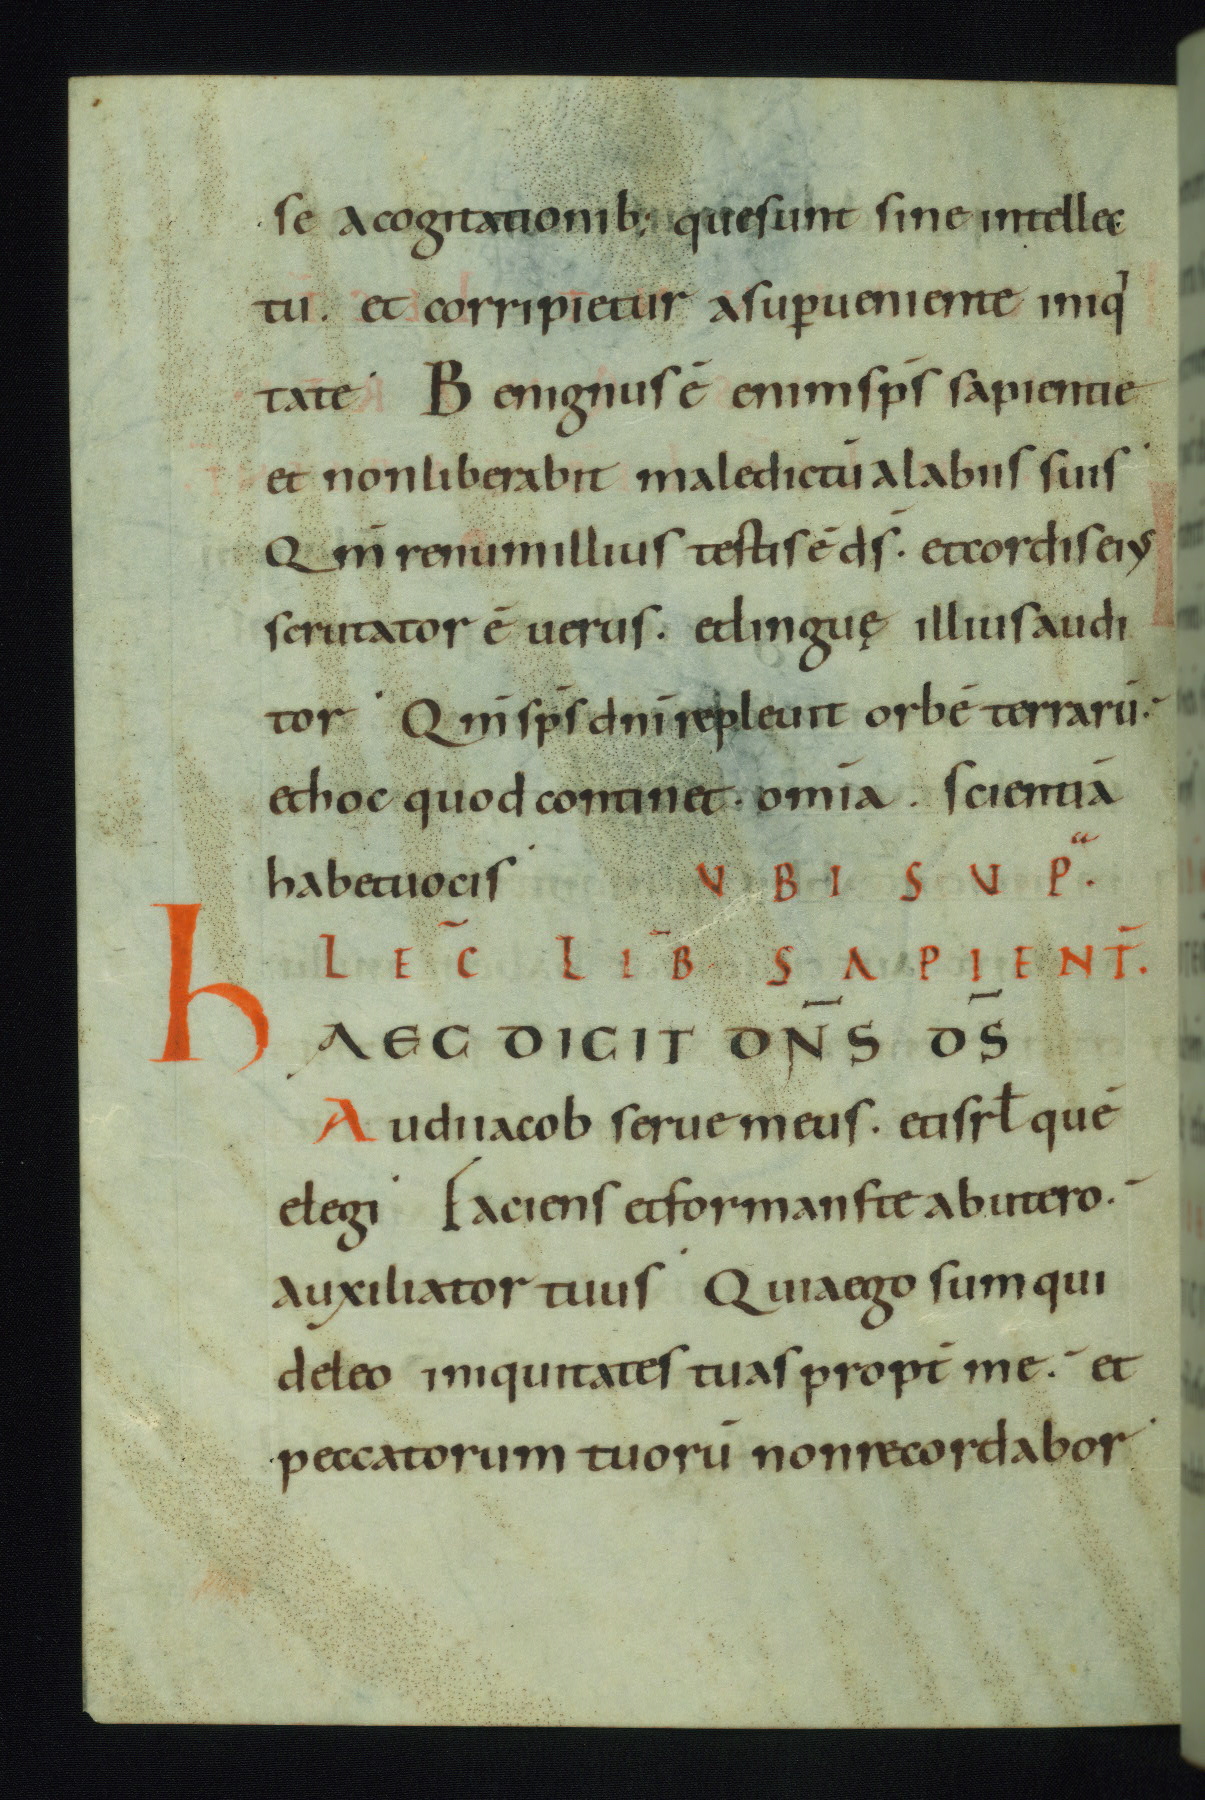 se a cogitationib; que sunt sine intellec
tu. et corripietur a sup̱ueniente iniq̍
tate· Benignus ē enim sp̄s sapientie
et non liberabit maledictū a labiis suis·
Qm̄ renum illius testis ē ds̄. et cordis eiꝰ
scrutator ē uerus. et linguę illius audi
tor· Qm̄ sp̄s dn̄i repleuit orbē terrarū.
et hoc quod continet. om̄ia. scientiā
habet uocis· UBI SUPᵃ.
LEC̄ LIB̄ SAPIENT̄.
hAEC DICIT DN̄S DS̄
Audi iacob serue meus. et isrł quē
elegi· Faciens et formans te ab utero.
auxiliator tuus· Quia ego sum qui
deleo iniquitates tuas propt̄ me. et
peccatorum tuorū non recordabor·